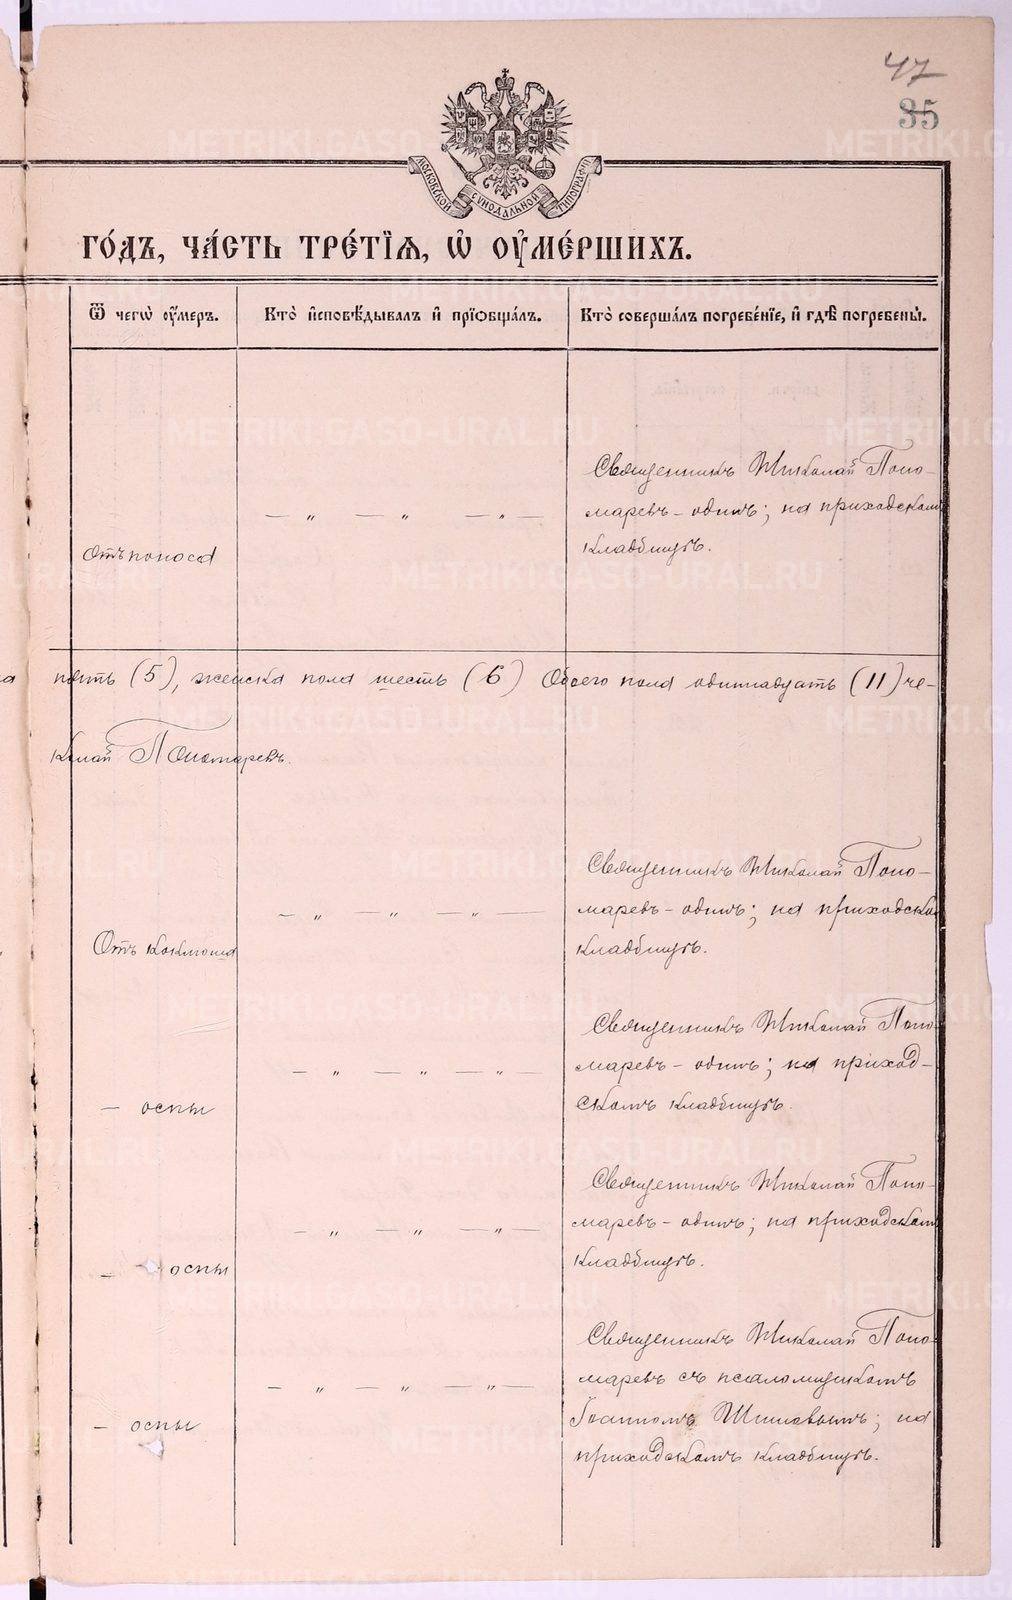 47
35
МОСКОВСКОЙ СѴНОДАЛЬНОЙ ТИПОГРАФІИ
ГО́ДЪ, ЧА́СТЬ ТРЕ́ТІѦ, Ѡ҆ ОУ҆МЕ́РШИХЪ.
Ѿ чегѡ̀ оу҆́меръ.
Кто̀ и҆сповѣ́дывалъ и҆ прїѡбща́лъ.
Кто̀ соверша́лъ погребе́нїе, и҆ гдѣ̀ погребены̀.
Священникъ Николай Поно-
— „ — „ — „ —
маревъ – одинъ; на приходскомъ
Отъ поноса
кладбищѣ.
пять (5), женска пола шесть (6) Обоего пола одиннадцать (11) че-
колай Пономаревъ.
Священникъ Николай Поно-
— „ — „ — „ —
маревъ – одинъ; на приходско
Отъ коклюша
кладбищѣ.
Священникъ Николай Поно
— „ — „ — „ —
маревъ – одинъ; на приход-
— оспы
скомъ кладбищѣ.
Священникъ Николай Поно-
— „ — „ — „ —
маревъ – одинъ; на приходскомъ
— оспы
кладбищѣ.
Священникъ Николай Поно-
— „ — „ — „ —
маревъ съ псаломщикомъ
— оспы
Іоанномъ Шиловымъ; на
приходскомъ кладбищѣ.
METRIKI.GASO-URAL.RU